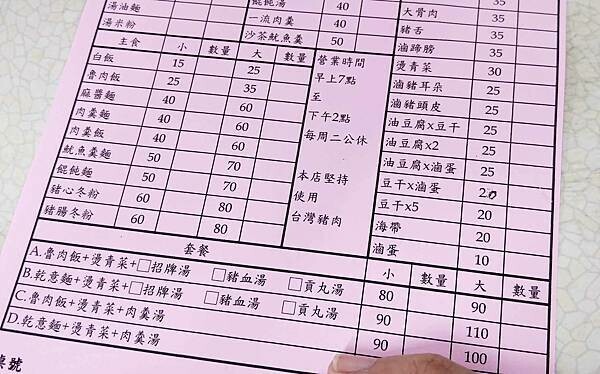 湯油麵
湯米粉
餛飩湯 40
一流肉羹 40
沙茶魷魚羹 50
主食 小 數量 大 數量
白飯 15 25
魯肉飯 25 35
麻醬麵 40 60
肉羹麵 40 60
肉羹飯 40 60
魷魚羹麵 50 70
餛飩麵 50 70
豬心冬粉 60 80
豬腸冬粉 60 80
營業時間
早上7點
至
下午2點
每周二公休
本店堅持
使用
台灣豬肉
35
大骨肉 35
豬舌 35
滷蹄膀 35
燙青菜 30
滷豬耳朵 25
滷豬頭皮 25
油豆腐x豆干 25
油豆腐x2 25
油豆腐x滷蛋 25
豆干x滷蛋 20
豆干x5 20
海帶 20
滷蛋 10
套餐 小 數量 大 數量
A.魯肉飯+燙青菜+□招牌湯 □豬血湯 □貢丸湯 80 90
B.乾意麵+燙青菜+□招牌湯 □豬血湯 □貢丸湯 90 110
C.魯肉飯+燙青菜+肉羹湯 90 100
D.乾意麵+燙青菜+肉羹湯
桌號